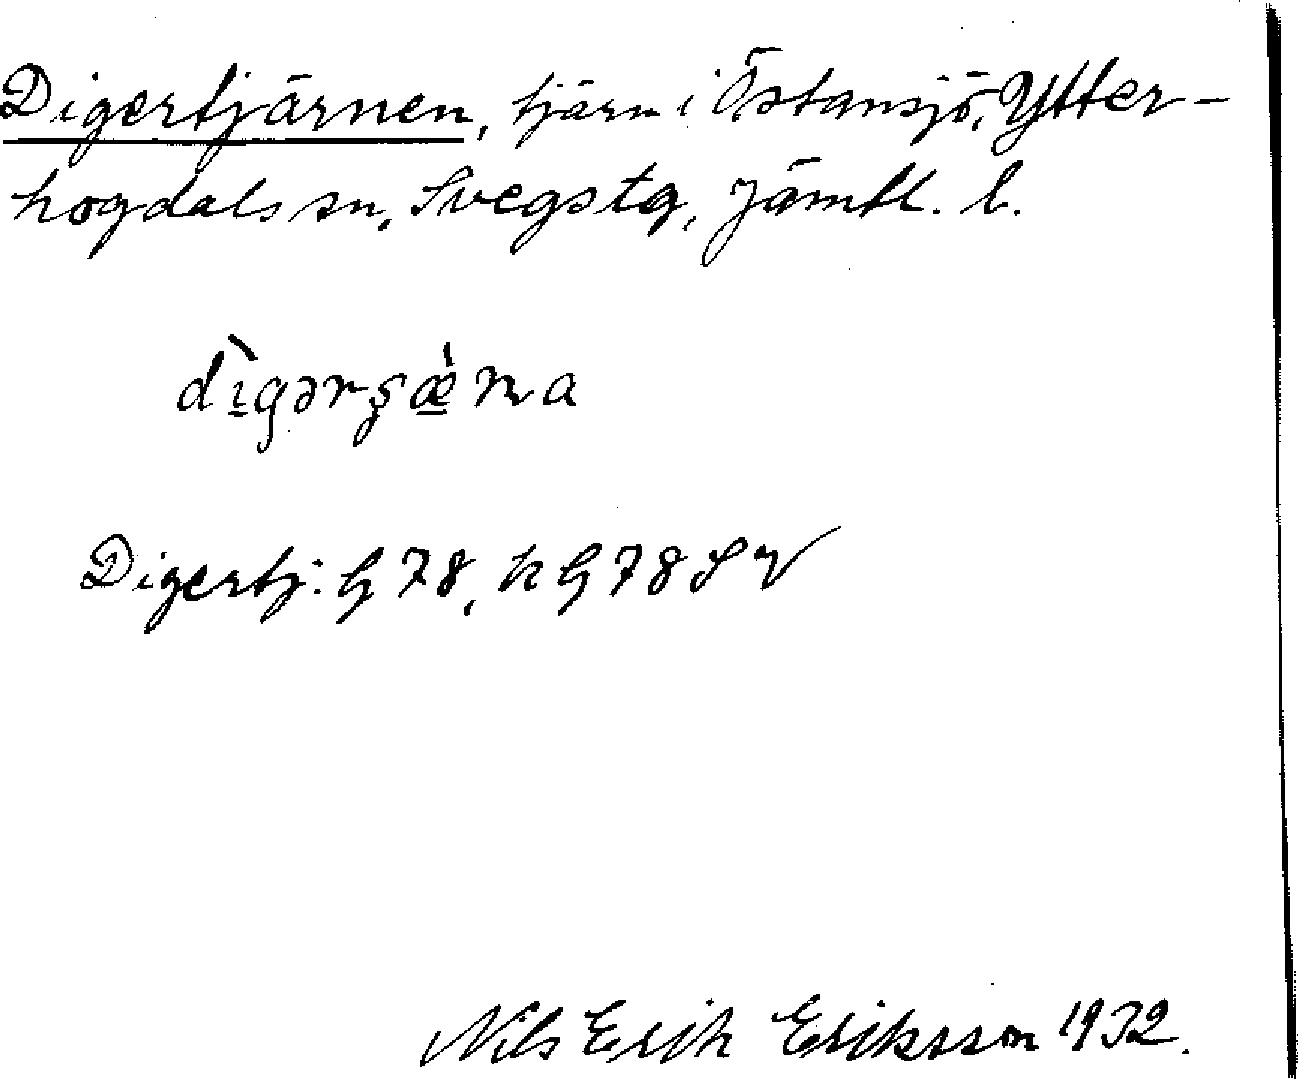 Digertjärnen, tjärn i Östansjö, Ytter-
hogdals sn, Svegs tg, Jämtl. l.
dìgərşæ̀ɳa
Digertj: G 78, k G 78 SV
Nils Erik Eriksson 1932.